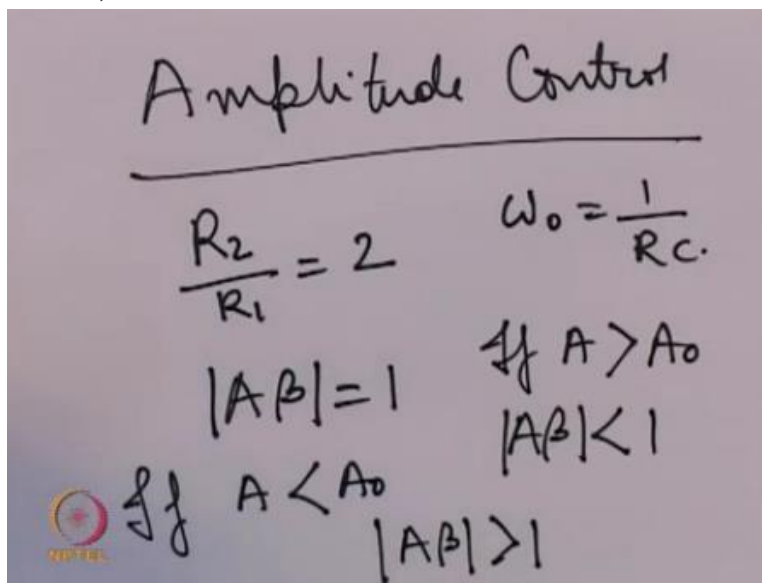 Amplitude Control
R₂/R₁ = 2
ω₀ = 1/RC.
|Aβ| = 1
If A > A₀
|Aβ| < 1
If A < A₀
|Aβ| > 1
NPTEL